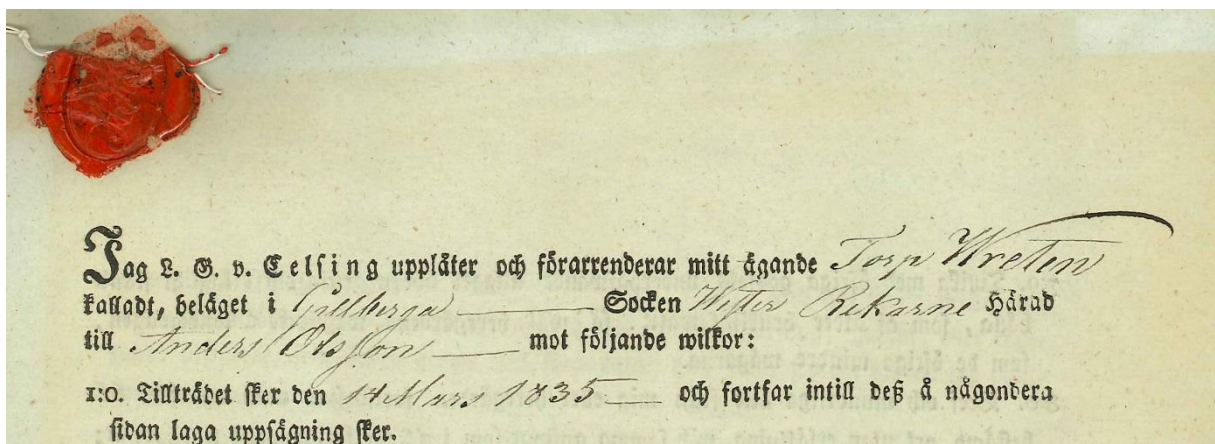 Jag L. G. v. Celsing upplåter och förarrenderar mitt ägande Torp Wreten
kalladt, beläget i Gillberga — Socken Wester Rekarne Härad
till Anders Olsson — mot följande wilkor:
1:o. Tillträdet sker den 14 Mars 1835 — och fortfar intill deß å någondera
sidan laga uppsägning sker.